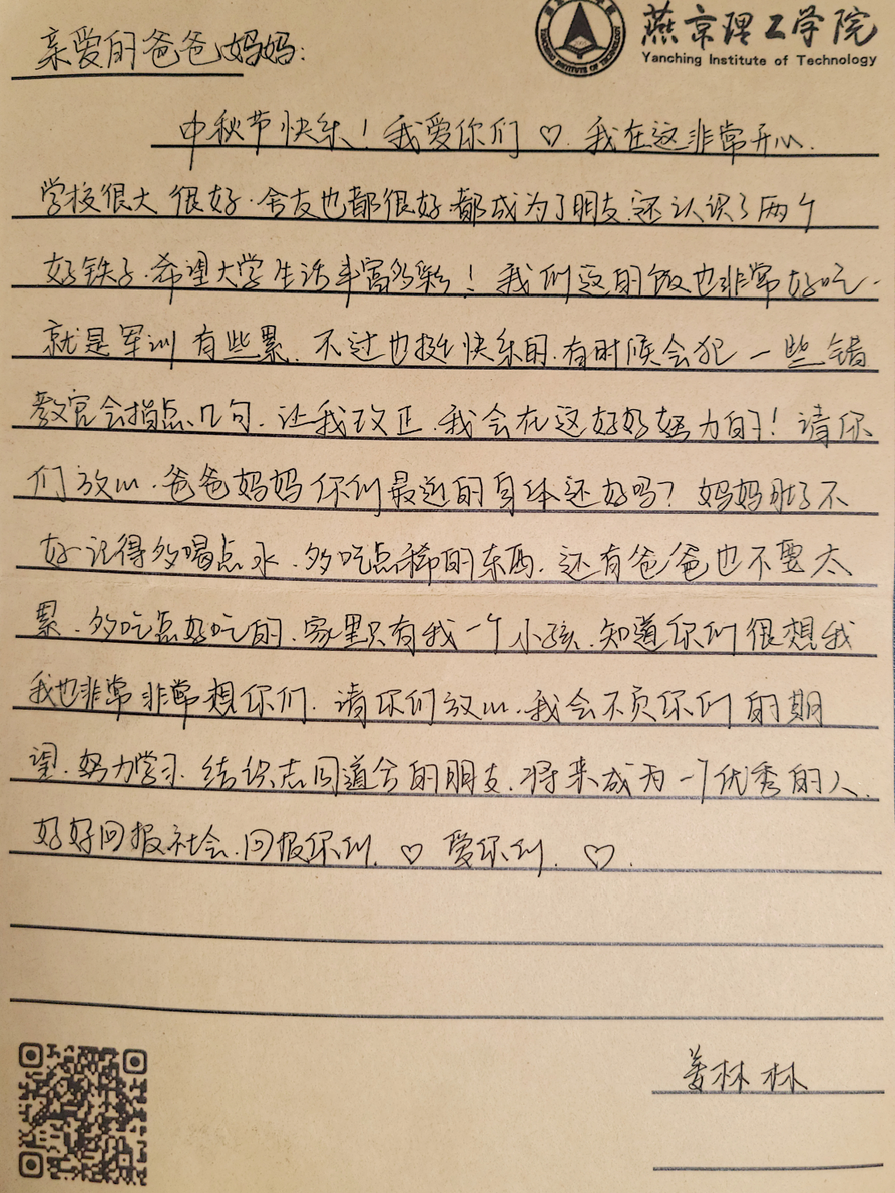 燕京理工学院
Yanching Institute of Technology
亲爱的爸爸妈妈:
中秋节快乐！我爱你们♡.我在这非常开心.
学校很大很好.舍友也都很好.都成为了朋友.还认识了两个
好铁子.希望大学生活丰富多彩！我们这的饭也非常好吃.
就是军训有些累.不过也挺快乐的.有时候会犯一些错
教官会指点几句.让我改正.我会在这好好努力的！请你
们放心.爸爸妈妈你们最近的身体还好吗？妈妈肚子不
好记得多喝点水.多吃点稀的东西.还有爸爸也不要太
累.多吃点好吃的.家里只有我一个小孩.知道你们很想我
我也非常非常想你们.请你们放心.我会不负你们的期
望.努力学习.结识志同道合的朋友.将来成为一个优秀的人.
好好回报社会.回报你们.♡爱你们.♡.
姜林林